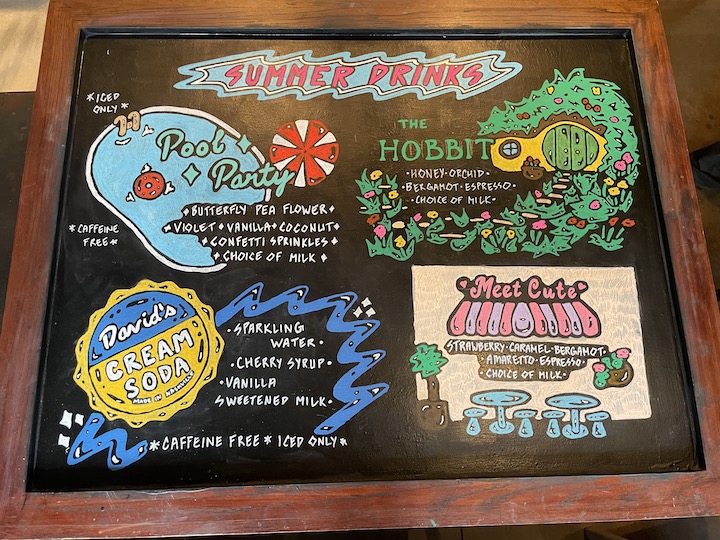 SUMMER DRINKS
*ICED
ONLY*
Pool
Party
*CAFFEINE
FREE*
BUTTERFLY PEA FLOWER
VIOLET VANILLA COCONUT
CONFETTI SPRINKLES
CHOICE OF MILK
THE
HOBBIT
·HONEY·ORCHID·
·BERGAMOT·ESPRESSO·
·CHOICE OF MILK·
David's
CREAM
SODA
·SPARKLING
WATER·
·CHERRY SYRUP·
·VANILLA
SWEETENED MILK·
*CAFFEINE FREE*ICED ONLY*
Meet Cute
STRAWBERRY·CARAMEL·BERGAMOT·
·AMARETTO·ESPRESSO·
·CHOICE OF MILK·